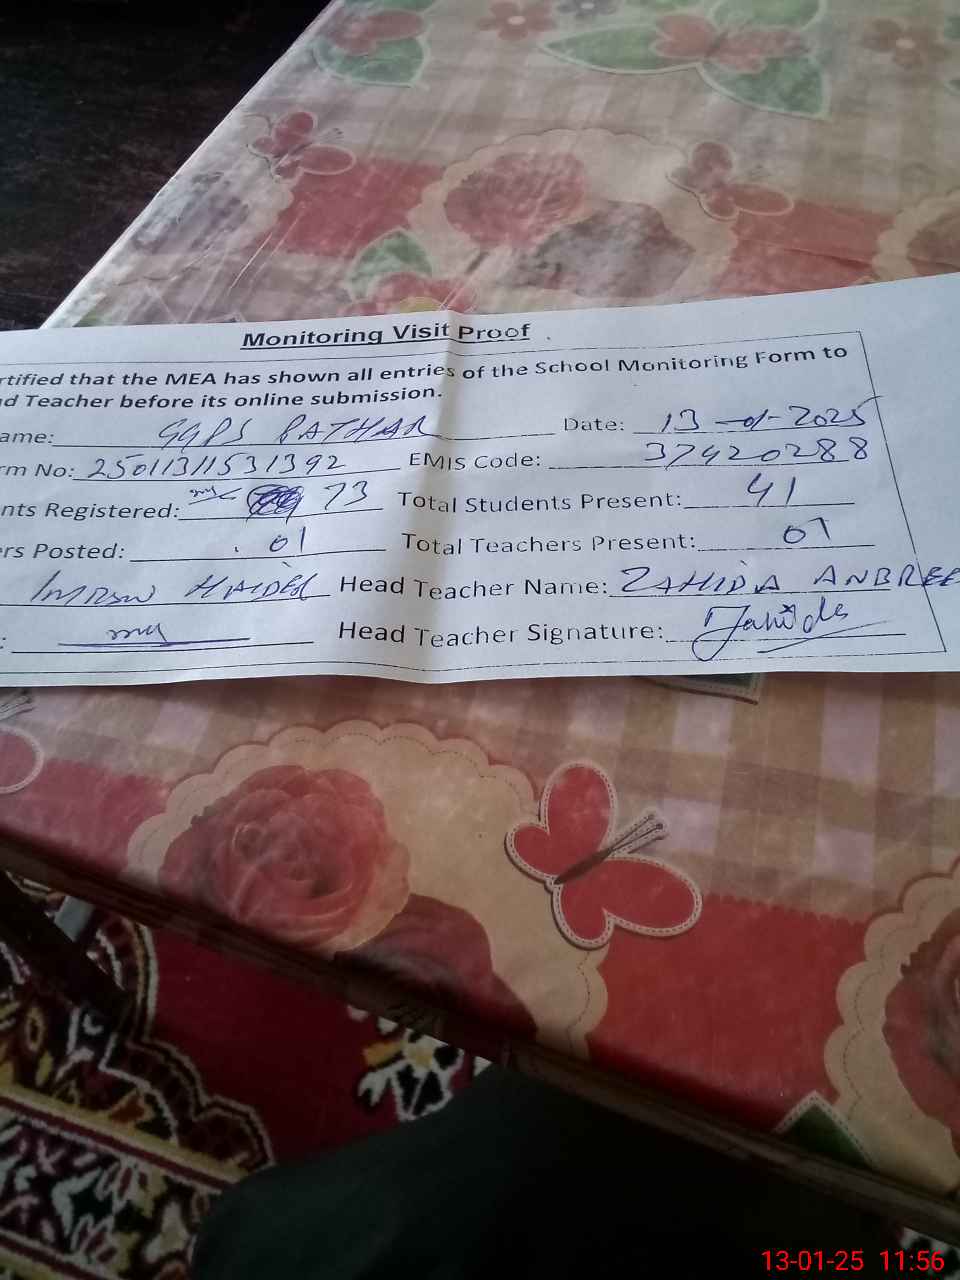 Monitoring Visit Proof
rtified that the MEA has shown all entries of the School Monitoring Form to
d Teacher before its online submission.
ame: GGPS PATHAR Date: 13-01-2025
rm No: 25011311531392 EMIS Code: 37420288
nts Registered: 73 Total Students Present: 41
ers Posted: 01 Total Teachers Present: 01
IMRAN HAIDER Head Teacher Name: ZAHIDA ANBREE
: Head Teacher Signature: Zahida
13-01-25 11:56